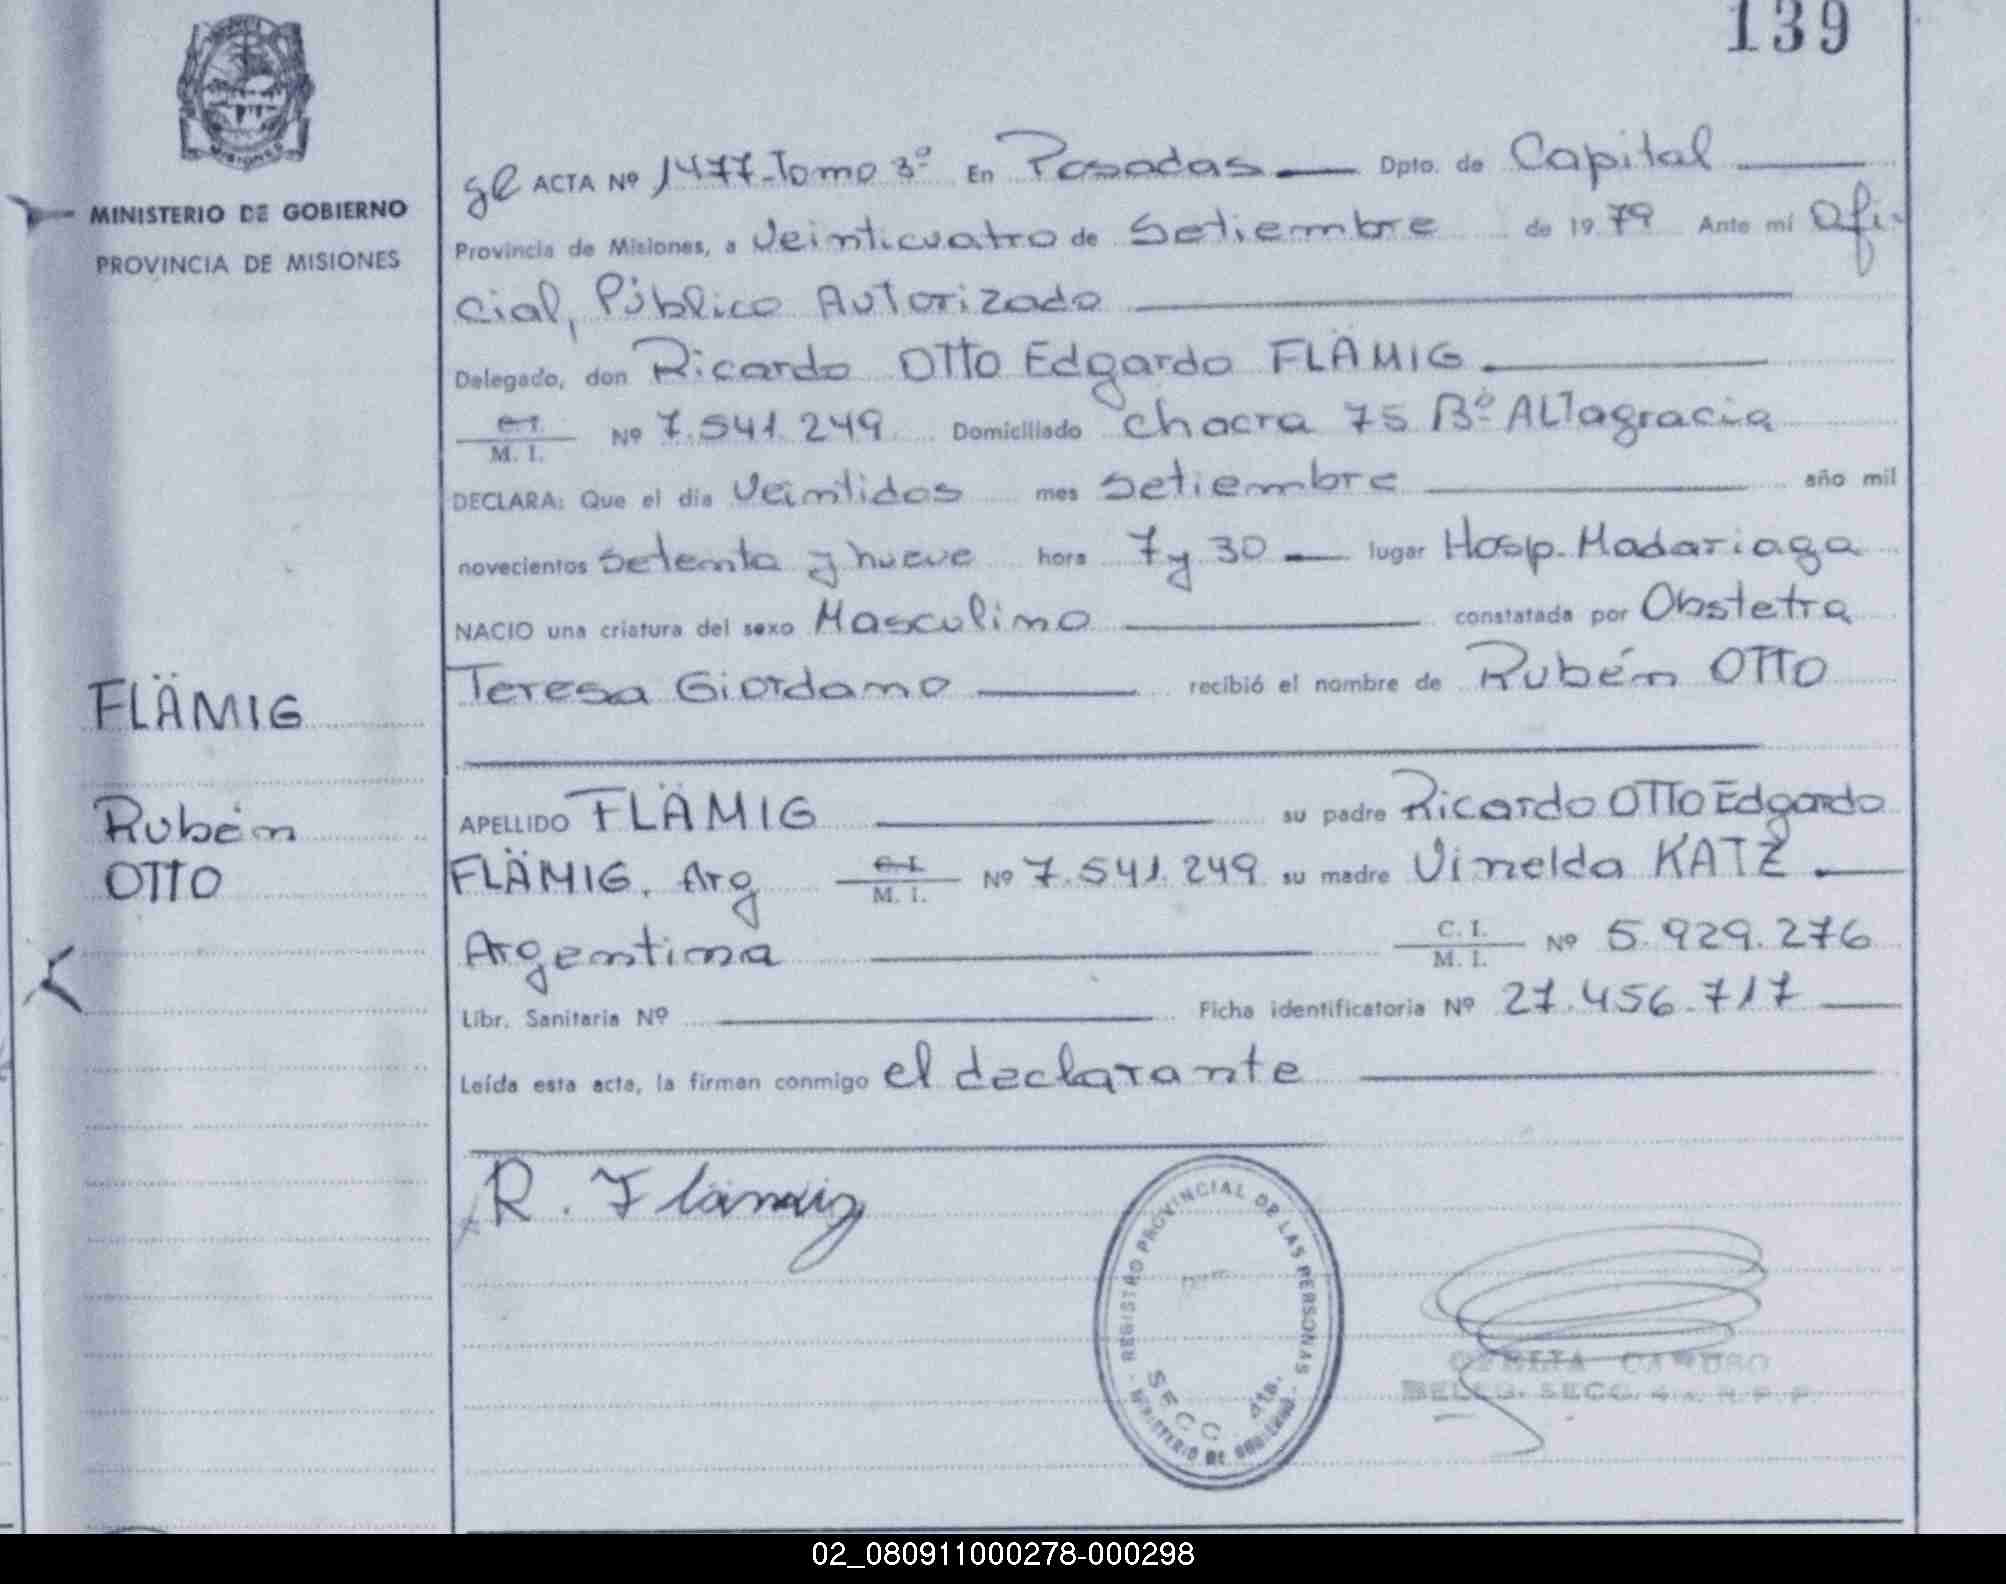 139
MISIONES
MINISTERIO DE GOBIERNO
PROVINCIA DE MISIONES
FLÄMIG
Rubén
OTTO
ACTA Nº 1477-Tomo 3º En Posadas Dpto. de Capital
Provincia de Misiones, a Veinticuatro de Setiembre de 1979 Ante mí Ofi-
cial, Público Autorizado
Delegado, don Ricardo OTTO Edgardo FLÄMIG
C.I.
M. I. Nº 7.541.249 Domiciliado Chacra 75 Bº ALTagracia
DECLARA: Que el día Veintidos mes Setiembre año mil
novecientos Setenta y nueve hora 7 y 30 lugar Hosp. Madariaga
NACIO una criatura del sexo Masculino constatada por Obstetra
Teresa Giordano recibió el nombre de Rubén OTTO
APELLIDO FLÄMIG su padre Ricardo OTTO Edgardo
FLÄMIG, Arg C.I. M. I. Nº 7.541.249 su madre Vinelda KATZ
Argentina C. I. M. I. Nº 5.929.276
Libr. Sanitaria Nº Ficha identificatoria Nº 27.456.717
Leída esta acta, la firman conmigo el declarante
R. Flämig
REGISTRO PROVINCIAL DE LAS PERSONAS
SECC 4ta.
- MINISTERIO DE GOBIERNO -
CARUSO
DELEG. SECC. 4a. R. P. P.
02_080911000278-000298